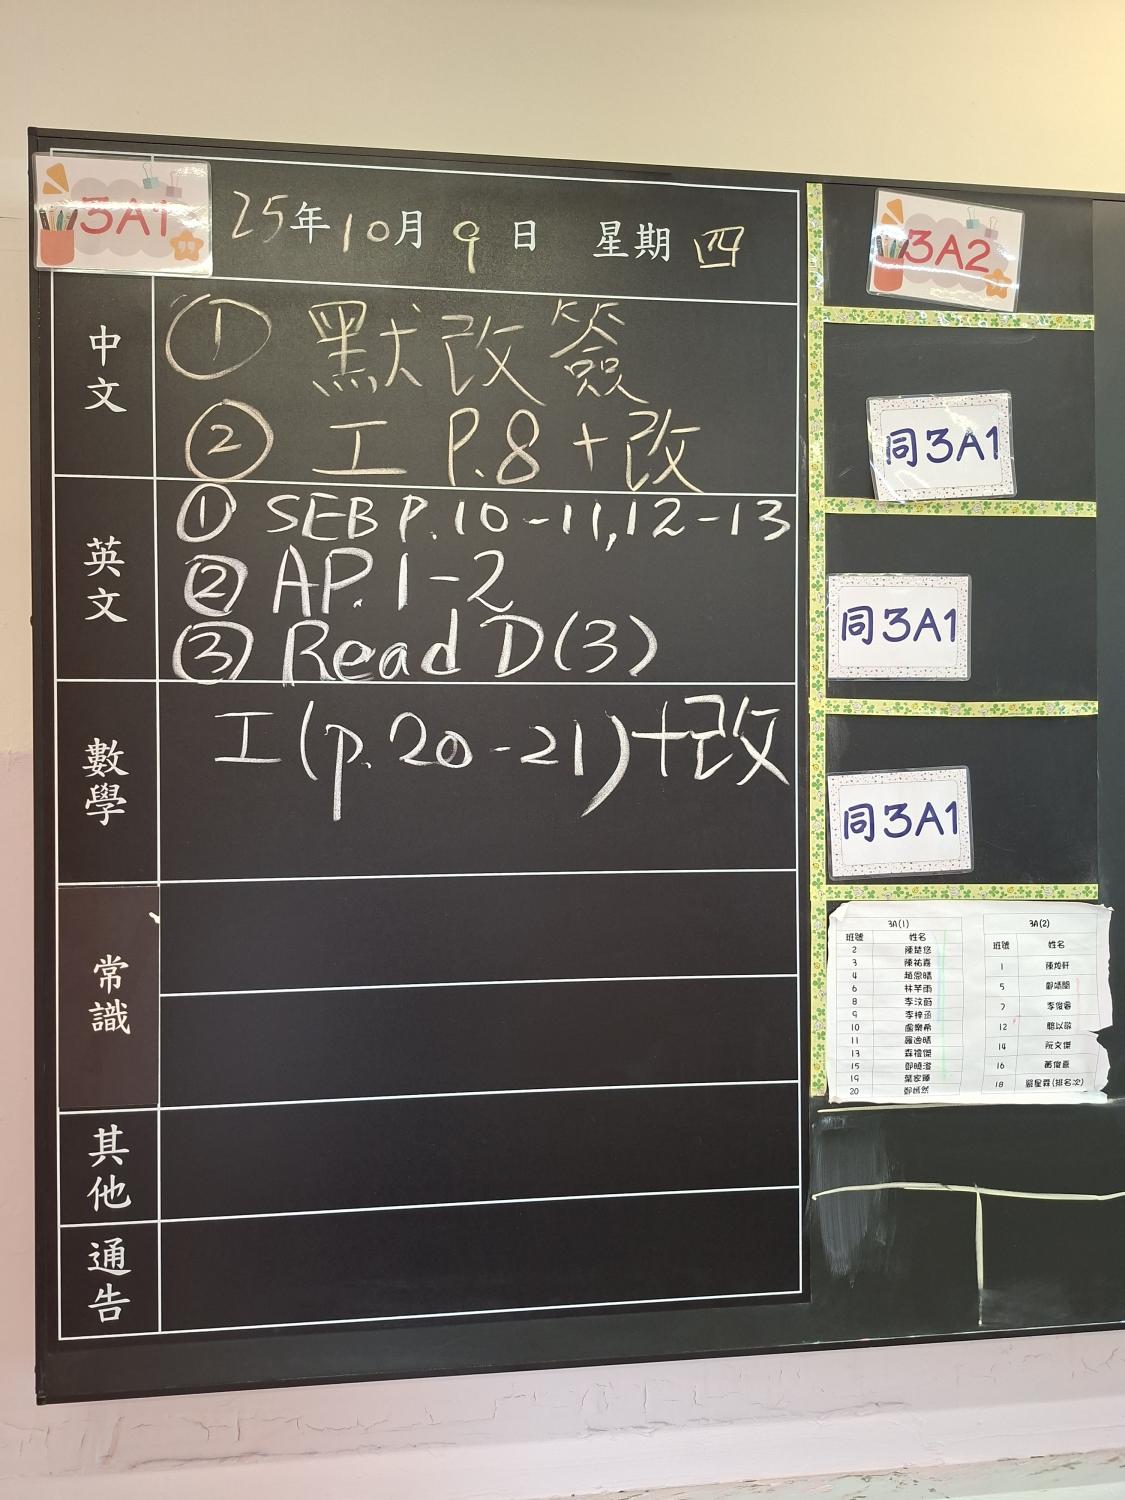 3A1
25年10月9日 星期四
中文
① 默改簽
② 工 P.8 + 改
英文
① SEB P.10-11,12-13
② AP.1-2
③ Read D(3)
數學
工(p.20-21)+改
常識
其他
通告
3A2
同3A1
同3A1
同3A1
3A(1)
班號 姓名
2 陳楚悠
3 陳祐嘉
4 趙恩晴
6 林芊雨
8 李汶蔚
9 李梓丞
10 盧樂希
11 羅逸晴
13
15
19 葉家臻
20
3A(2)
班號 姓名
1
5
7 李俊睿
12
14 阮文傑
16 黃俊熹
18 嚴星霖(排名次)